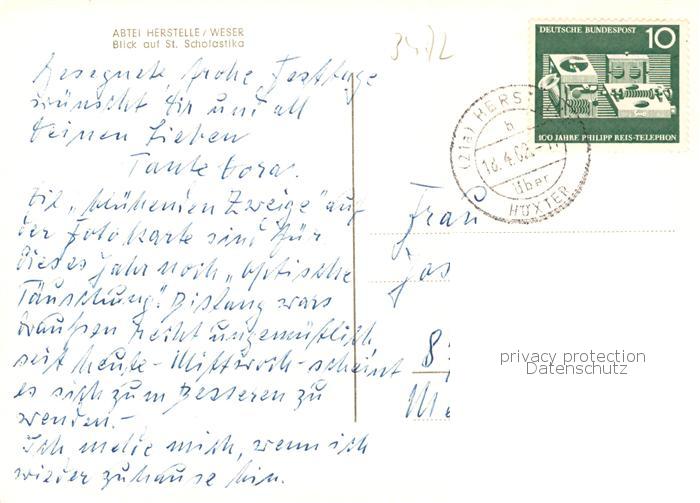 ABTEI HERSTELLE / WESER
Blick auf St. Scholastika
34/2
DEUTSCHE BUNDESPOST 10
100 JAHRE PHILIPP REIS-TELEPHON
(21a) HERST
b
18.4.62.-17
über
HÖXTER
Gesegnete, frohe Festtage
wünscht Dir und all
Deinen Lieben
Tante Dora.
Die „blühenden Zweige" auf
der Fotokarte sind für
dieses Jahr noch „optische
Täuschung". Bislang wars
draußen recht ungemütlich
seit heute - Mittwoch - scheint
es sich zum Besseren zu
wenden. -
Ich melde mich, wenn ich
wieder zuhause bin.
Frau
Jos
8
privacy protection
Datenschutz